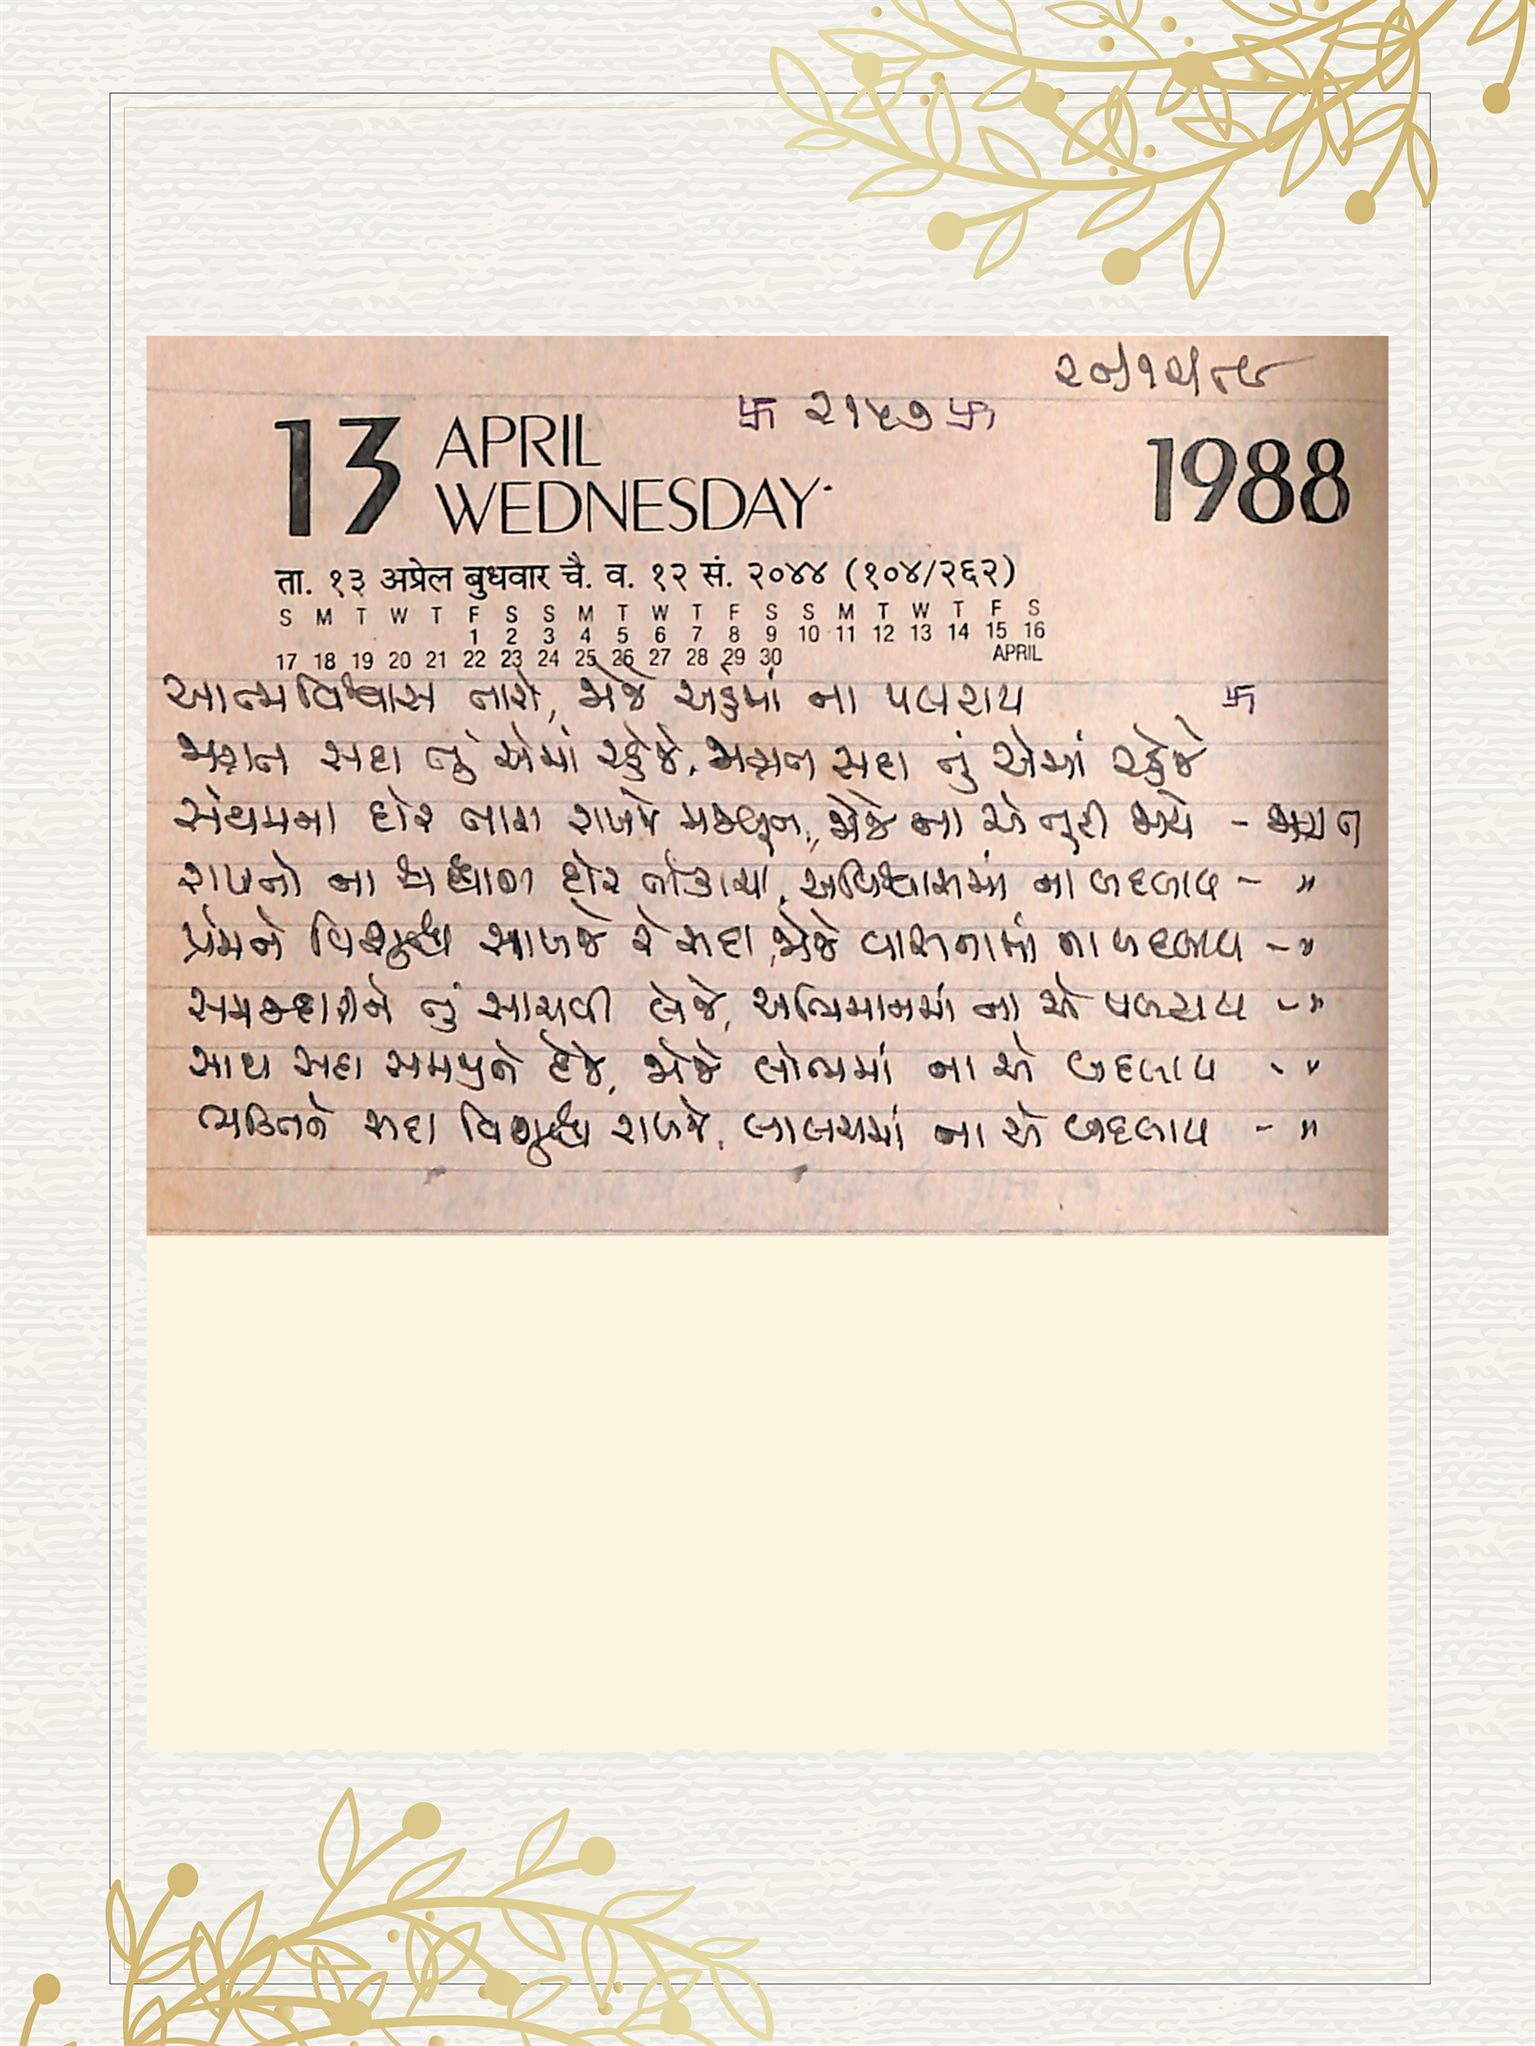 ૨૦/૧૨/૮૯
卐 ૨૧૫૭ 卐
13 APRIL WEDNESDAY 1988
ता. १३ अप्रेल बुधवार चै. व. १२ सं. २०४४ (१०४/२६२)
S M T W T F S S M T W T F S S M T W T F S
1 2 3 4 5 6 7 8 9 10 11 12 13 14 15 16
17 18 19 20 21 22 23 24 25 26 27 28 29 30 APRIL
આત્મવિશ્વાસ તારો, જોજે અહંમાં ના પલટાય 卐
જાગ્રત સદા તું એમાં રહેજે, જાગ્રત સદા તું એમાં રહેજે
સંયમના દોર તારા રાખજે મજબૂત, જોજે ના એ તૂટી જાયે - જાગ્રત
રાખતો ના શ્રદ્ધાળ દોર, અવિશ્વાસમાં ના બદલાય - "
પ્રેમને વિશુદ્ધ રાખજે રે સદા, જોજે વાસનામાં ના બદલાય - "
સમજદારીને તું સાચવી લેજે, અભિમાનમાં ના એ પલટાય - "
સાથ સદા સમયને દેજે, જોજે લોભમાં ના એ બદલાય - "
ભક્તિને સદા વિશુદ્ધ રાખજે, લાલચમાં ના એ બદલાય - "